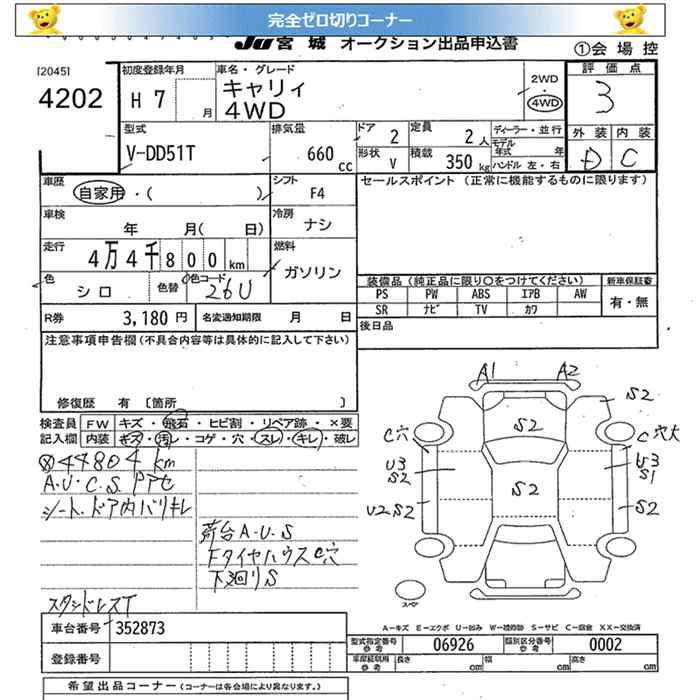 完全ゼロ切りコーナー
JU 宮城 オークション出品申込書
①会場控
[2045]
4202
初度登録年月
H 7 月
車名・グレード
キャリィ
4WD
2WD
・
4WD
評価点
3
外装 内装
D C
型式
V-DD51T
排気量
660 cc
ドア 2
定員 2 人
形状 V
積載 350 kg
ディーラー・並行
モデル年式 年
ハンドル 左・右
車歴
自家用・( )
シフト
F4
セールスポイント (正常に機能するものに限ります)
車検
年 月( 日)
冷房
ナシ
走行
4万4千800km
燃料
ガソリン
色
シロ
色替
色コード
26U
装備品(純正品に限り○をつけてください)
新車保証書
PS PW ABS エアB AW
有・無
SR ナビ TV カワ
R券 3,180円
名変通知期限 月 日
後日品
注意事項申告欄(不具合内容等は具体的に記入して下さい)
修復歴 有 [箇所 ]
検査員記入欄
FW キズ・飛石・ヒビ割・リペア跡・×要
内装 キズ・汚レ・コゲ・穴・スレ・キレ・破レ
44804km
A.U.C.S.PPセ
シート.ドア内バリキレ
荷台A.U.S
FタイヤハウスC穴
下廻りS
スタンドレスT
A1 A2
S2
S2
C穴
C穴大
U3
S2
S2
U3
S1
U2 S2
S2
スペア
A-キズ E-エクボ U-凹み W-補修跡 S-サビ C-腐食 XX-交換済
車台番号 352873
型式指定番号 参考 06926
類別区分番号 参考 0002
登録番号
車庫証明用 参考 長さ cm 幅 cm 高さ cm
希望出品コーナー (コーナーは各会場により異なります。)